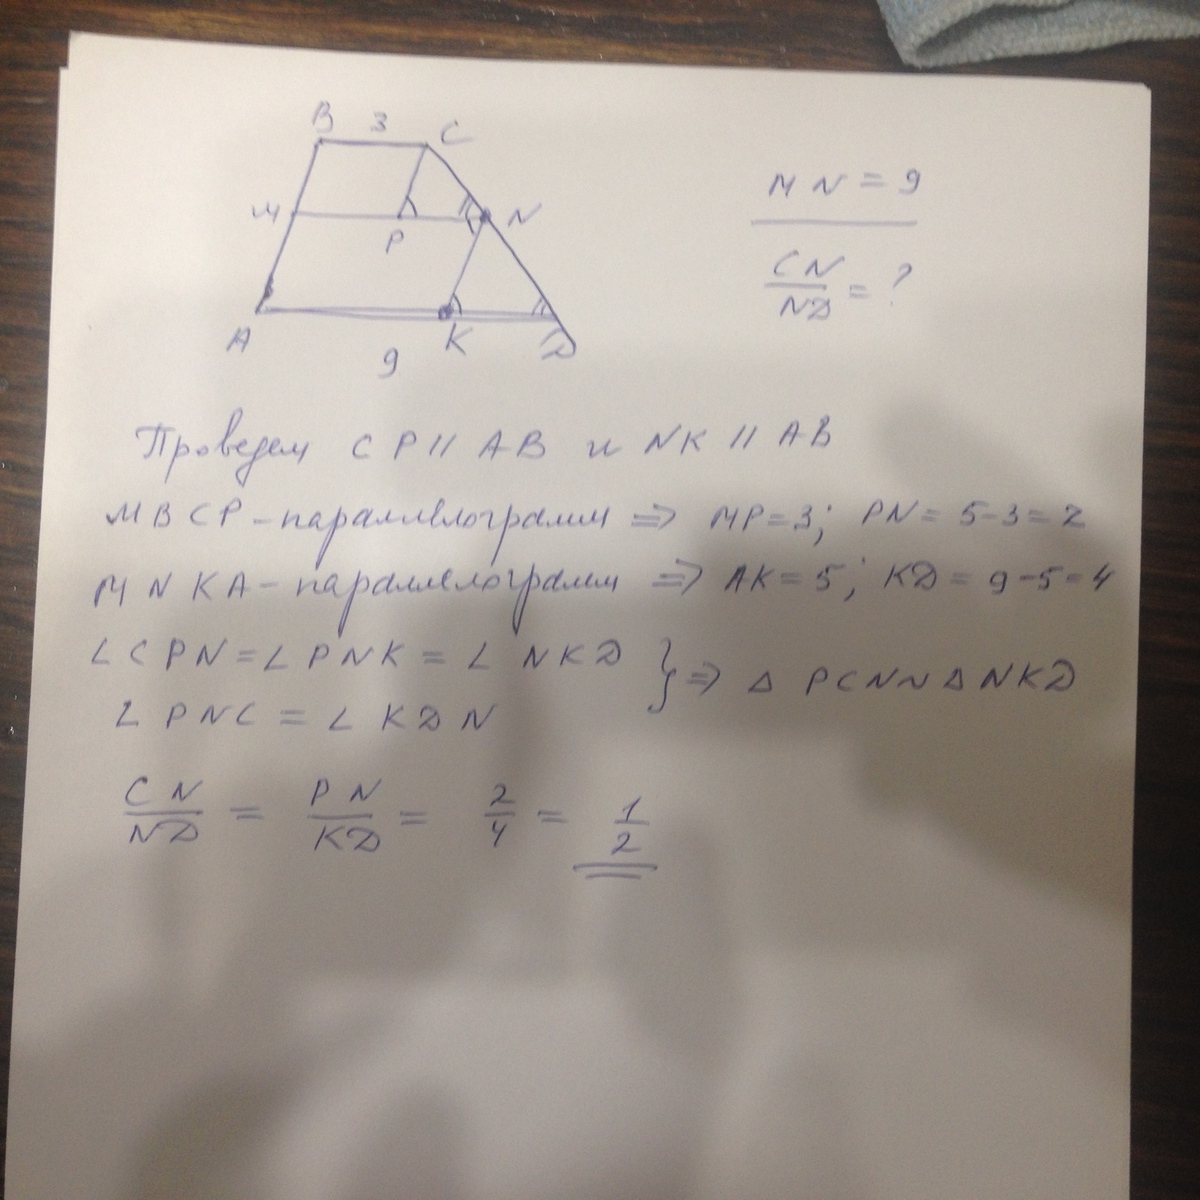 B 3 C
M P N
A K D
9
MN = 9
CN/ND = ?
Проведем CP || AB и NK || AB
MBCP - параллелограмм => MP = 3; PN = 5-3 = 2
MNKA - параллелограмм => AK = 5; KD = 9-5 = 4
∠CPN = ∠PNK = ∠NKD
∠PNC = ∠KDN } => △PCN ~ △NKD
CN/ND = PN/KD = 2/4 = 1/2